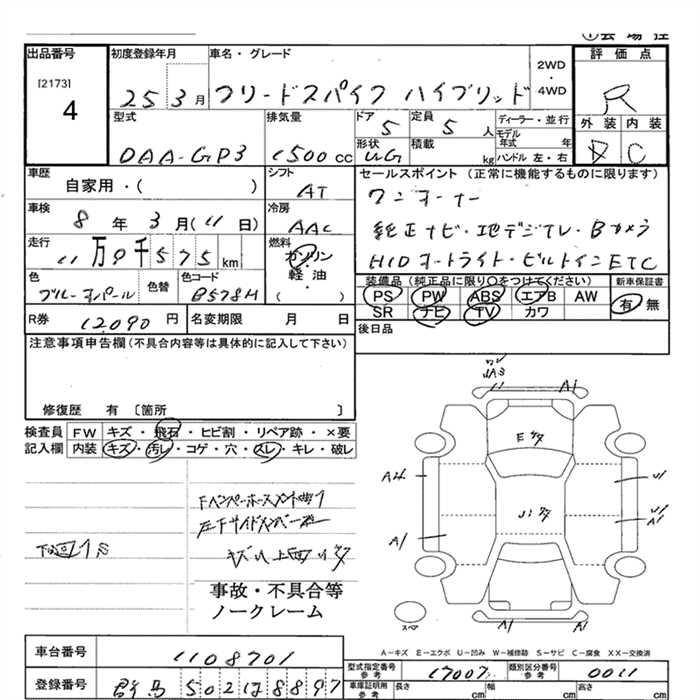 出品番号
[2173]
4
初度登録年月
25 3月
車名・グレード
フリードスパイク ハイブリッド
2WD
・
4WD
評価点
R
外装 内装
D C
型式
DAA-GP3
排気量
1500 cc
ドア
5
定員
5 人
形状
WG
積載
kg
ディーラー・並行
モデル
年式 年
ハンドル 左・右
車歴
自家用・( )
シフト
AT
車検
8 年 3 月(11 日)
冷房
AAC
走行
11万9千575 km
燃料
ガソリン
・
軽油
( )
色
ブルーオパール
色替
色コード
B578M
セールスポイント (正常に機能するものに限ります)
ワンオーナー
純正ナビ・地デジTV・Bカメラ
HIDオートライト・ビルトインETC
装備品 (純正品に限り○をつけてください)
PS PW ABS エアB AW
SR ナビ TV カワ
新車保証書
有 無
R券 12090 円
名変期限 月 日
後日品
注意事項申告欄(不具合内容等は具体的に記入して下さい)
修復歴 有 〔箇所 〕
検査員 FW キズ・飛石・ヒビ割・リペア跡・×要
記入欄 内装 キズ・汚レ・コゲ・穴・スレ・キレ・破レ
事故・不具合等
ノークレーム
A1
A4
A1
A1
A1
A1
スペア
A-キズ E-エクボ U-凹み W-補修跡 S-サビ C-腐食 XX-交換済
車台番号 1108701
登録番号 群馬 502 ほ 8897
型式指定番号
参考
17007
類別区分番号
参考
0011
車庫証明用
参考
長さ cm
幅 cm
高さ cm